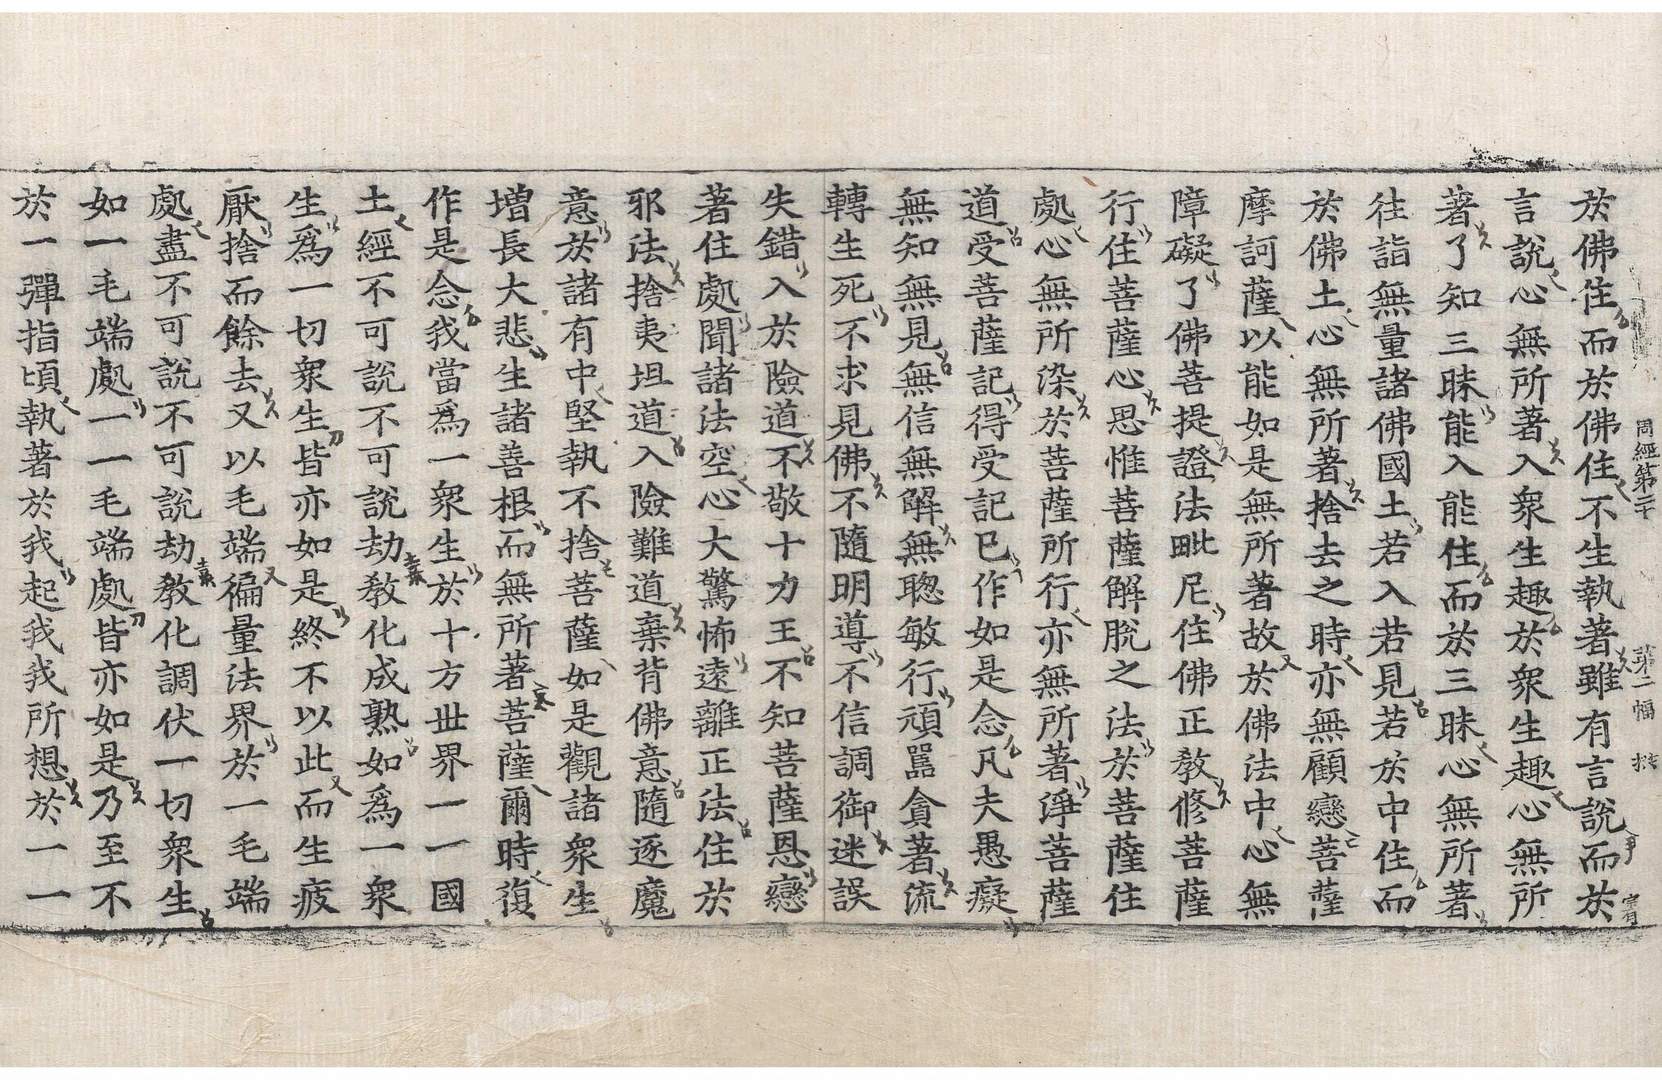 周經第二十 第二幅
於佛住而於佛住不生執著雖有言說而於
言說心無所著入衆生趣於衆生趣心無所
著了知三昧能入能住而於三昧心無所著
往詣無量諸佛國土若入若見若於中住而
於佛土心無所著捨去之時亦無顧戀菩薩
摩訶薩以能如是無所著故於佛法中心無
障礙了佛菩提證法毗尼住佛正敎修菩薩
行住菩薩心思惟菩薩解脫之法於菩薩住
處心無所染於菩薩所行亦無所著淨菩薩
道受菩薩記得受記已作如是念凡夫愚癡
無知無見無信無解無聦敏行頑嚚貪著流
轉生死不求見佛不隨明導不信調御迷誤
失錯入於險道不敬十力王不知菩薩恩戀
著住處聞諸法空心大驚怖遠離正法住於
邪法捨夷坦道入險難道棄背佛意隨逐魔
意於諸有中堅執不捨菩薩如是觀諸衆生
增長大悲生諸善根而無所著菩薩爾時復
作是念我當爲一衆生於十方世界一一國
土經不可說不可說劫敎化成熟如爲一衆
生爲一切衆生皆亦如是終不以此而生疲
厭捨而餘去又以毛端徧量法界於一毛端
處盡不可說不可說劫敎化調伏一切衆生
如一毛端處一一毛端處皆亦如是乃至不
於一彈指頃執著於我起我我所想於一一